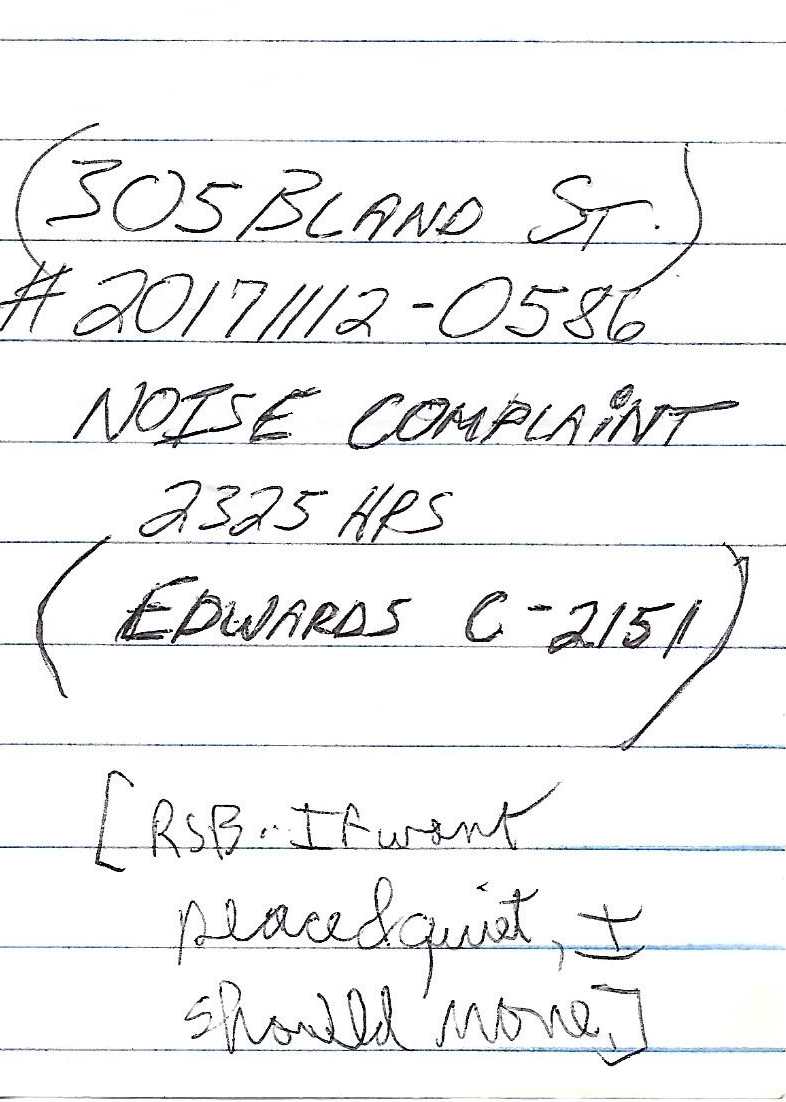 (305 BLAND ST.)
#20171112-0586
NOISE COMPLAINT
2325 HRS
(EDWARDS C-2151)
[RSB: If want
peace & quiet, I
should move.]